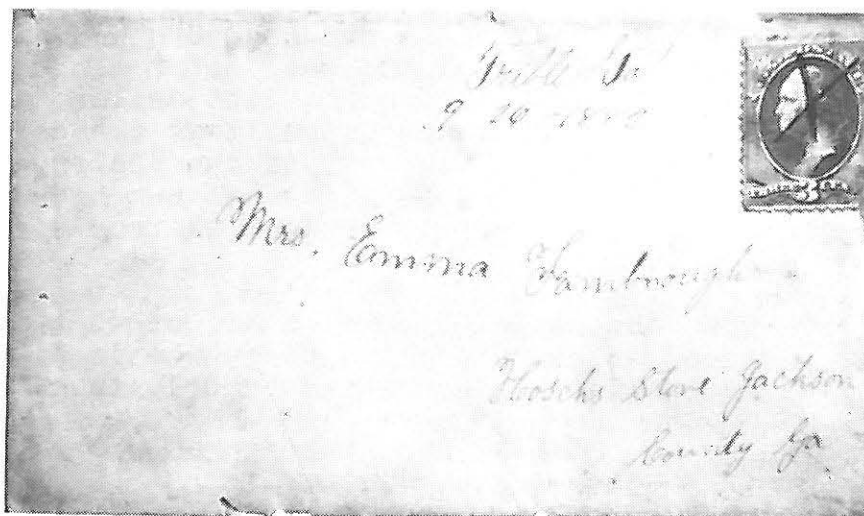 Tribble Ga
Mrs. Emma Hambrough
Hoschs Store Jackson
County Ga
3